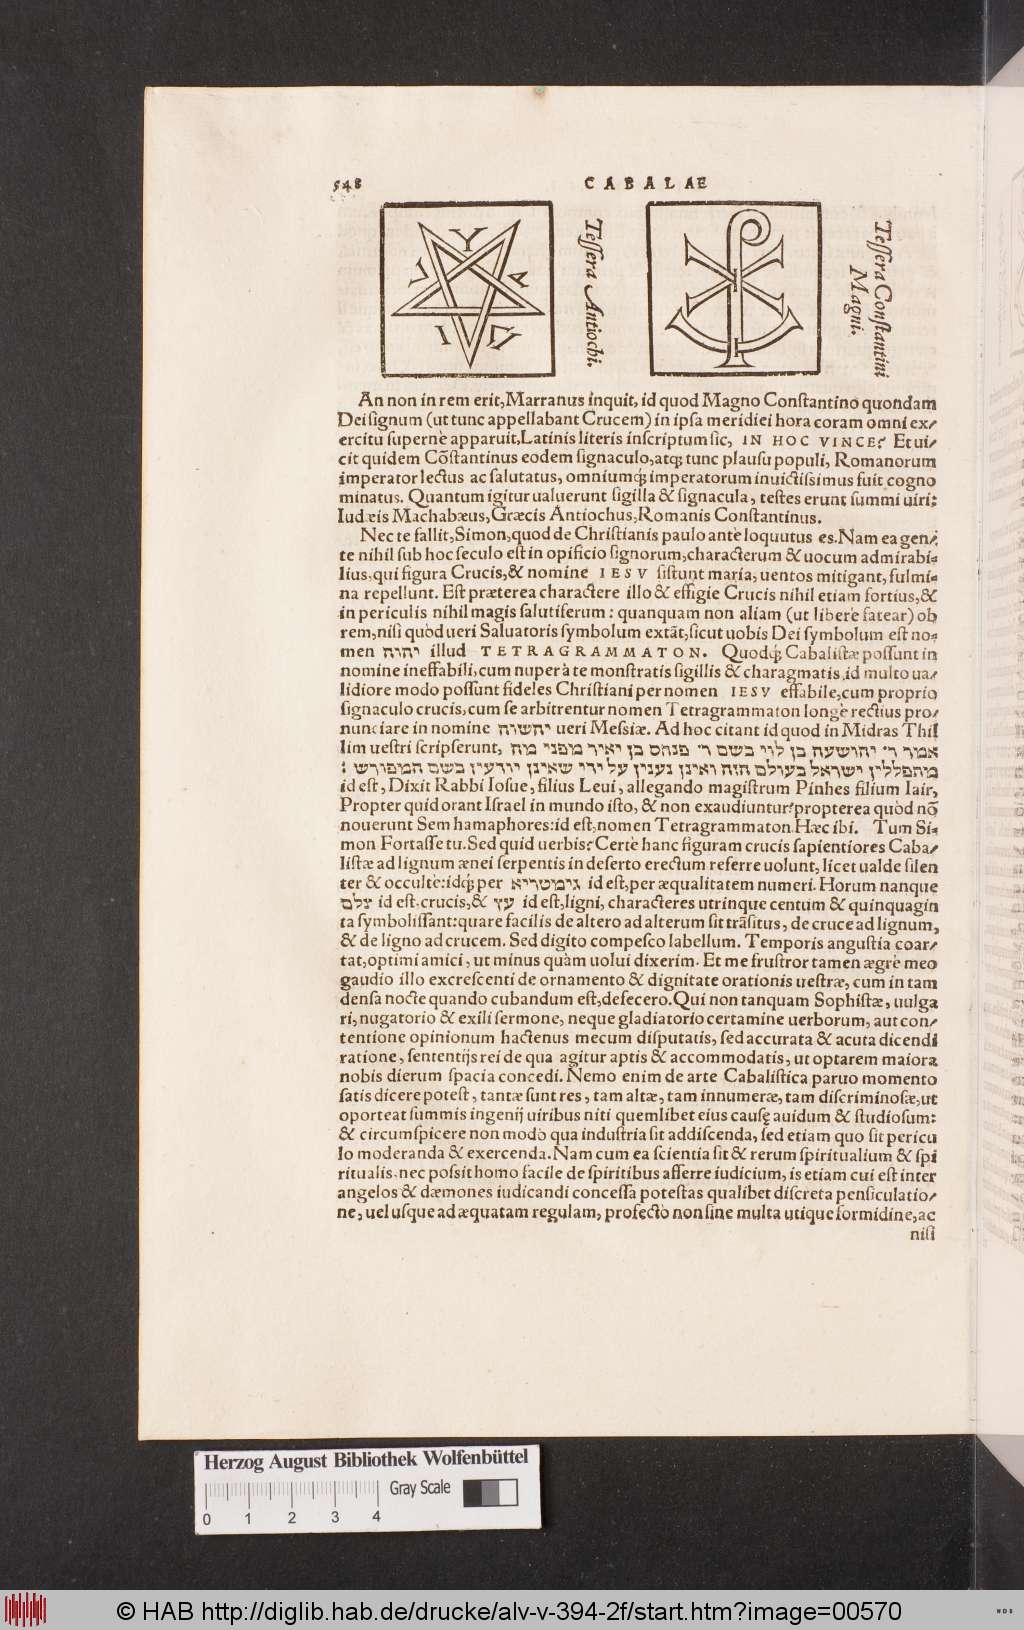 548
CABALAE
Y
Γ
I
Teſſera Antiochi.
Teſſera Conſtantini
Magni.
An non in rem erit, Marranus inquit, id quod Magno Conſtantino quondam
Dei ſignum (ut tunc appellabant Crucem) in ipſa meridiei hora coram omni ex/
ercitu ſupernè apparuit, Latinis literis inſcriptum ſic, IN HOC VINCE? Et ui/
cit quidem Cõſtantinus eodem ſignaculo, atq́; tunc plauſu populi, Romanorum
imperator lectus ac ſalutatus, omniumq́; imperatorum inuictiſsimus fuit cogno
minatus. Quantum igitur ualuerunt ſigilla & ſignacula, teſtes erunt ſummi uiri:
Iudæis Machabæus, Græcis Antiochus, Romanis Conſtantinus.
Nec te fallit, Simon, quod de Chriſtianis paulo antè loquutus es. Nam ea gen/
te nihil ſub hoc ſeculo eſt in opificio ſignorum, characterum & uocum admirabi-
lius, qui figura Crucis, & nomine IESV ſiſtunt maria, uentos mitigant, fulmi-
na repellunt. Eſt præterea charactere illo & effigie Crucis nihil etiam fortius, &
in periculis nihil magis ſalutiferum: quanquam non aliam (ut liberè fatear) ob
rem, niſi quòd ueri Saluatoris ſymbolum extãt, ſicut uobis Dei ſymbolum eſt no-
men יהוה illud TETRAGRAMMATON. Quodq́; Cabaliſtæ poſſunt in
nomine ineffabili, cum nuper à te monſtratis ſigillis & charagmatis, id multo ua/
lidiore modo poſſunt fideles Chriſtiani per nomen IESV effabile, cum proprio
ſignaculo crucis, cum ſe arbitrentur nomen Tetragrammaton longè rectius pro/
nunciare in nomine יהשוה ueri Meſsiæ. Ad hoc citant id quod in Midras Thil
lim ueſtri ſcripſerunt, אמור ר׳ יהושעה בן לוי בשם ר׳ פנחס בן יאיר מפני מה
מתפללין ישראל בעולם הזה ואינן נענין על ידי שאינן יודעין בשם המפורש :
id eſt, Dixit Rabbi Ioſue, filius Leui, allegando magiſtrum Pinhes filium Iair,
Propter quid orant Iſrael in mundo iſto, & non exaudiuntur? propterea quòd nõ
nouerunt Sem hamaphores: id eſt, nomen Tetragrammaton. Hæc ibi. Tum Si-
mon Fortaſſe tu. Sed quid uerbis? Certè hanc figuram crucis ſapientiores Caba/
liſtæ ad lignum ænei ſerpentis in deſerto erectum referre uolunt, licet ualde ſilen
ter & occultè: idq́; per גימטריא id eſt, per æqualitatem numeri. Horum nanque
צלם id eſt, crucis, & עץ id eſt, ligni, characteres utrinque centum & quinquagin
ta ſymboliſſant: quare facilis de altero ad alterum ſit trãſitus, de cruce ad lignum,
& de ligno ad crucem. Sed digito compeſco labellum. Temporis anguſtia coar/
tat, optimi amici, ut minus quàm uolui dixerim. Et me fruſtror tamen ægrè meo
gaudio illo excreſcenti de ornamento & dignitate orationis ueſtræ, cum in tam
denſa nocte quando cubandum eſt, defecero. Qui non tanquam Sophiſtæ, uulga
ri, nugatorio & exili ſermone, neque gladiatorio certamine uerborum, aut con/
tentione opinionum hactenus mecum diſputatis, ſed accurata & acuta dicendi
ratione, ſententijs rei de qua agitur aptis & accommodatis, ut optarem maiora
nobis dierum ſpacia concedi. Nemo enim de arte Cabaliſtica paruo momento
ſatis dicere poteſt, tantæ ſunt res, tam altæ, tam innumeræ, tam diſcriminoſæ, ut
oporteat ſummis ingenij uiribus niti quemlibet eius cauſę auidum & ſtudioſum:
& circumſpicere non modò qua induſtria ſit addiſcenda, ſed etiam quo ſit pericu
lo moderanda & exercenda. Nam cum ea ſcientia ſit & rerum ſpiritualium & ſpi
ritualis, nec poſsit homo facile de ſpiritibus afferre iudicium, is etiam cui eſt inter
angelos & dæmones iudicandi conceſſa poteſtas qualibet diſcreta penſiculatio/
ne, uel uſque ad æquatam regulam, profectò non ſine multa utique formidine, ac
niſi
Herzog August Bibliothek Wolfenbüttel
Gray Scale
0 1 2 3 4
© HAB http://diglib.hab.de/drucke/alv-v-394-2f/start.htm?image=00570